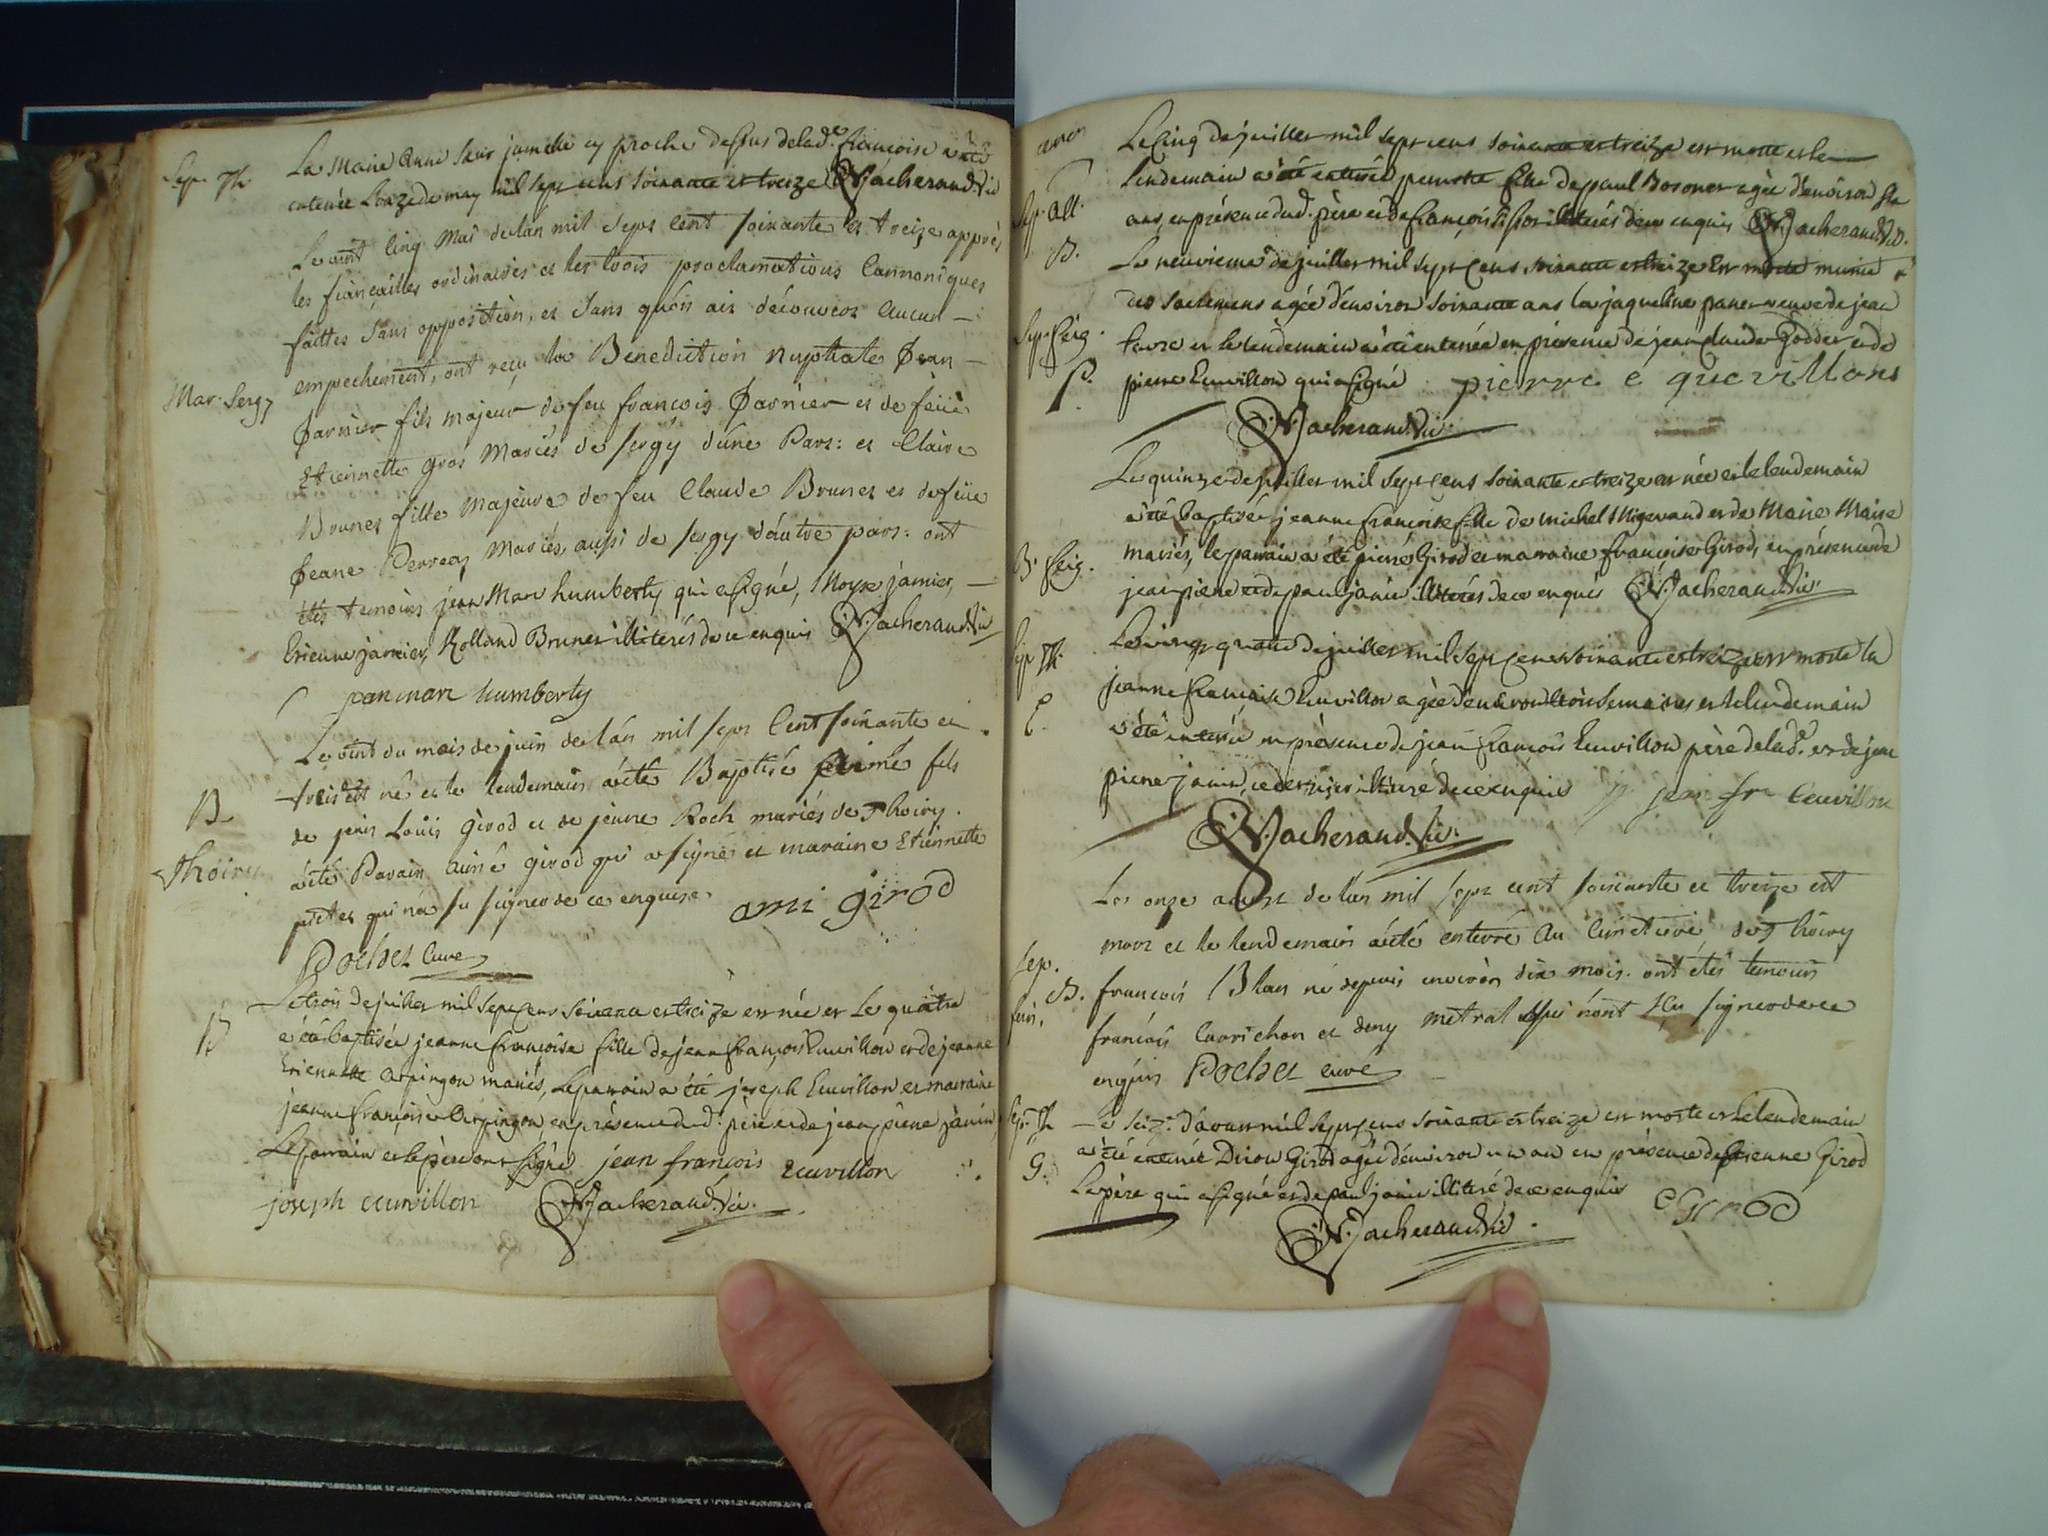 Sep. Th.
La Marie Anne Sœur jumelle cy proche dessus de lad.e françoise a été
enterrée Lonze de may mil sept cens soixante et treize N. Vacherand Vic
Le vint cinq Mai de lan mil Sept Cent soixante et treize apprès
les fiançailles ordinaires et les trois proclamations Cannoniques
faittes Sans opposition, et Sans qu'on ait découvert Aucun
Mar. Sergy
empechement, ont reçu la Benediction nuptiale Jean
Jarnier fils majeur de feu françois Jarnier et de feüe
Etiennette gros Mariés de Sergy d'une Part: et Claire
Brunet fille Majeure de feu Claude Brunet et de feüe
Jeane Perreaz Mariés, aussi de Sergy d'autre part: ont
étés temoins jean Marc humberty qui a signé, Moyse jarnier,
Etienne jarnier, Rolland Brunet illiterés de ce enquis N. Vacherand Vic
jean marc humberty
Le vint du mois de juin de l'an mil sept Cent soixante et
trois est né et le lendemain a été Baptisé Aimé fils
B.
de jean Louis Girod et de jeanne Roch mariés de Thoiry.
Thoiry
a été Parain Aimé girod qui a signé et maraine Etiennette
qui n'a su signer de ce enquise. ami girod
Pochet Curé
B
Le trois de juillet mil sept cens soixante et treize est née et Le quatre
a été baptisée jeanne françoise fille de jean françois Cuvillon et de jeanne
Etiennette Arpingon mariés, Le parrain a été joseph Cuvillon et marraine
jeanne françoise Arpingon en présence dud. père et de jean pierre janin,
Le parrain et le père ont signé jean francois cuvillon
joseph cuvillon N. Vacherand Vic.
Le Cinq de juillet mil sept cens soixante et treize est morte et le
Lendemain a été enterrée pernette fille de paul Bosonet agée d'environ
Sep. All.
ans, en présence dud. père et de françois illiterés de ce enquis N. Vacherand Vic.
B.
Le neuvieme de juillet mil sept cens soixante et treize est morte munie
des sacremens agée d'environ soixante ans la jaqueline panet veuve de jean
Sep. Ferg.
favre et le lendemain a été enterrée en présence de jean Claude Goddet et de
P.
pierre Cuvillon qui a signé pierre e quevillons
N. Vacherand Vic.
Le quinze de juillet mil sept cens soixante et treize est née et le lendemain
a été baptisée jeanne françoise fille de michel Mugerand et de Marie Maire
B. Ferg.
mariés, le parrain a été pierre Girod et marraine françoise Girod, en présence de
jean pierre et de paul janin illiterés de ce enquis N. Vacherand Vic.
Sep Th.
Le vingt quatre de juillet mil sept cens soixante et treize est morte la
C.
jeanne françoise Cuvillon agée d'environ trois semaines et le lendemain
a été enterrée en présence de jean françois Cuvillon père de lad.e et de jean
pierre janin, ce dernier illiteré de ce enquis jean fr. Cuvillon
N. Vacherand Vic.
Le onze aoust de l'an mil sept cent soixante et treize est
mort et le lendemain a été enterré Au Cimetiere de Thoiry
Sep.
B. francois Blan né depuis environ dix mois. ont étés temoins
francois Currichon et deny metral qui n'ont su signer de ce
enquis Pochet curé
Sep. Th
Le seiz. d'aoust mil sept cens soixante et treize est morte et le lendemain
G.
a été enterrée Girod agée d'environ un an en présence d'Etienne Girod
Le père qui a signé et de paul janin illiteré de ce enquis E Girod
N. Vacherand Vic.